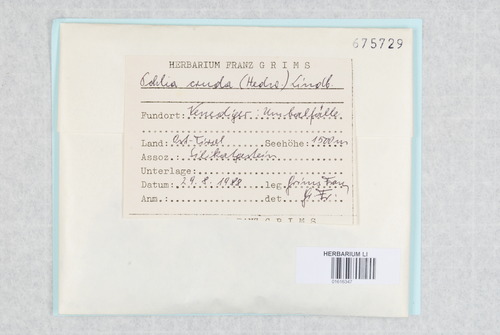 675729
HERBARIUM FRANZ GRIMS
Pohlia cruda (Hedw) Lindb.
Fundort: Venediger: Umbalfälle
Land: Ost-Tirol Seehöhe: 1500m
Assoz.: Silikatgestein
Unterlage:
Datum: 29.8.1988 leg. Grims Franz
Anm.: det. Gr. Fr.
GRIMS
HERBARIUM LI